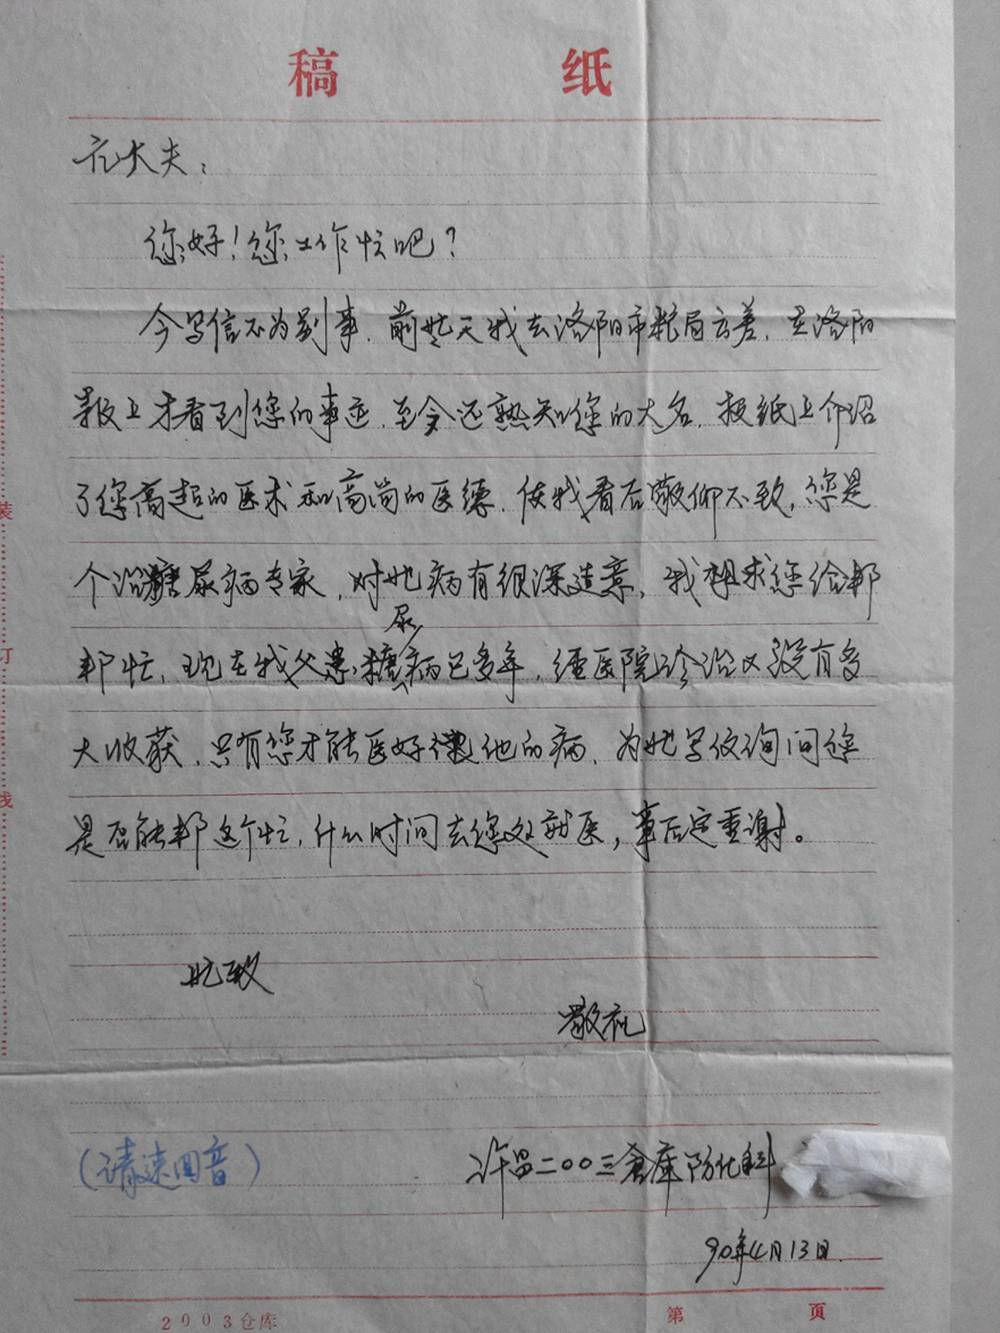 稿 纸
亢大夫：
您好！您工作忙吧？
今写信不为别事，前些天我去洛阳市粮局出差，在洛阳
报上才看到您的事迹，至今还熟知您的大名，报纸上介绍
了您高超的医术和高尚的医德，使我看后敬仰不致，您是
个治糖尿病专家，对此病有很深造意，我想求您给邦
邦忙，现在我父患糖尿病已多年，经医院诊治又没有多
大收获，只有您才能医好他的病，为此写仪询问您
是否能邦这个忙，什么时间去您处就医，事后定重谢。
此致
敬礼
（请速回音）
许昌二〇〇三仓库防化科
90年4月13日
2003仓库
第 页
装
订
线